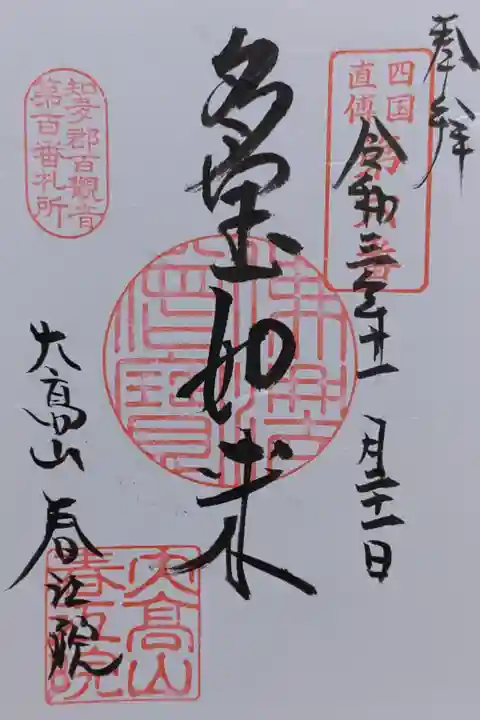 奉拝
四国
直傳
令和三年十一月二十一日
多宝如来
知多郡百観音
第百番札所
大高山 春江院
大高山
春江院